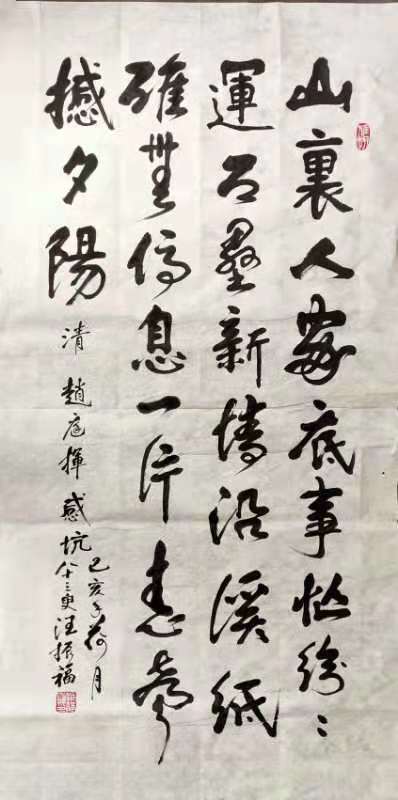 山裏人家底事忙紛〻
運石壘新墻沿溪紙
碓無停息一片舂聲
撼夕陽 清 趙庭揮 感坑
己亥年荷月
八十三叟汪振福